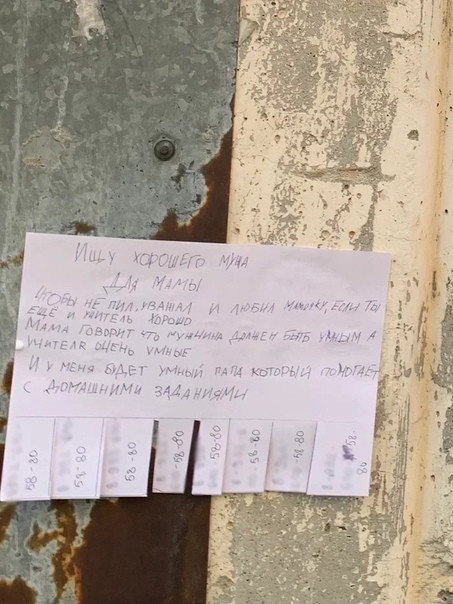 Ищу хорошего мужа
Для мамы
чтобы не пил, уважал и любил мамочку, если ты
ещё и учитель хорошо
Мама говорит что мужчина должен быть умным а
учителя очень умные
И у меня будет умный папа который помогает
с домашними заданиями
58-80
58-80
58-80
-58-80
58-80
58-80
-58-80
58-
80